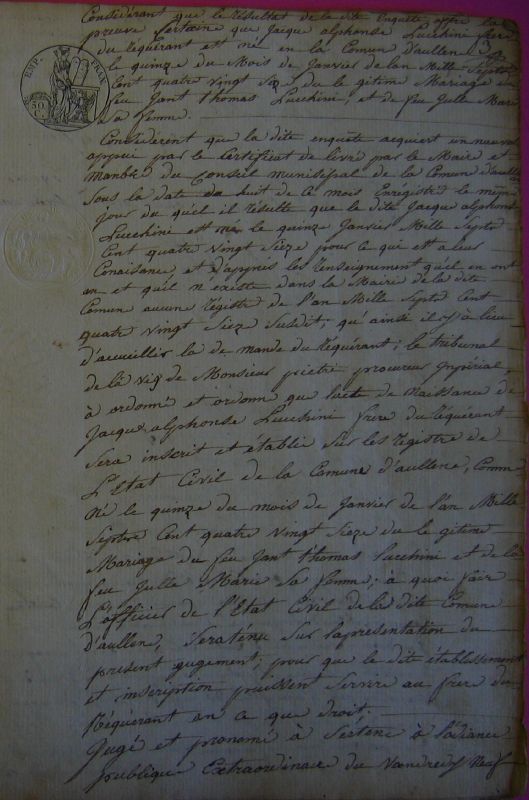 Considérant que le résultat de la dite Enquete offre la
preuve Certaine que Jacque alphonse Lucchini frere
du requérant est né en la Comun d'aullen
le quinze du Mois de Janvier de lan Mille Septe
Cent quatre Vingt Sieze du le gitime Mariage de
feu Jant thomas Lucchini, et de feu Julle Marie
Sa femme.
EMP. FRAN.
50 C.
Considerent que la dite enquete acquiert un nauveau
appui par le Certificat de livré par le Maire et
Manbre du Conseil Munisepal de la Comun d'aullen
Sous la date du huit de ce mois Enregistré le même
jour du quel il résulte que le dite Jacque alphonse
Lucchini est né le quinze Janvier Mille Septe
Cent quatre Vingt Sieze pour ce qui est a leur
Conaisance, et d'appris les renseignement qu'il en ont
an et qu'il n'existe dans la Mairie de la dite
Comun aucune régistre de l'an Mille Septe Cent
quatre Vingt Sieze Susdit; qu'ainsi il y à lieu
d'accuellir la de mande du Requérant; le tribunal
de l'avis de Monsieur pietri procureur Inpérial,
à ordonné et ordonne que l'acte de Naissance de
Jacque alphonse Lucchini frere du requérant
Sera inscrit et établi Sur les registre de
L'Etat Civil de la Comune d'aullene, Comme
Né le quinze du mois de Janvier de l'an Mille
Septe Cent quatre Vingt Sieze du le gitime
Mariage du feu Jant thomas Lucchini et de la
feu Julle Marie Sa femme; à quoi faire
L'officier de l'Etat Civil de la dite Comune
d'aullen, Seraténu Sur lapresentation du
present gugement, pour que le dite établissement
et inscription puissent Servire au frere du
Réquérant an ce que droit.
Jugé et prononcé à Sartene à l'odiance
publique Extraordinaire du Vandredy Neuf